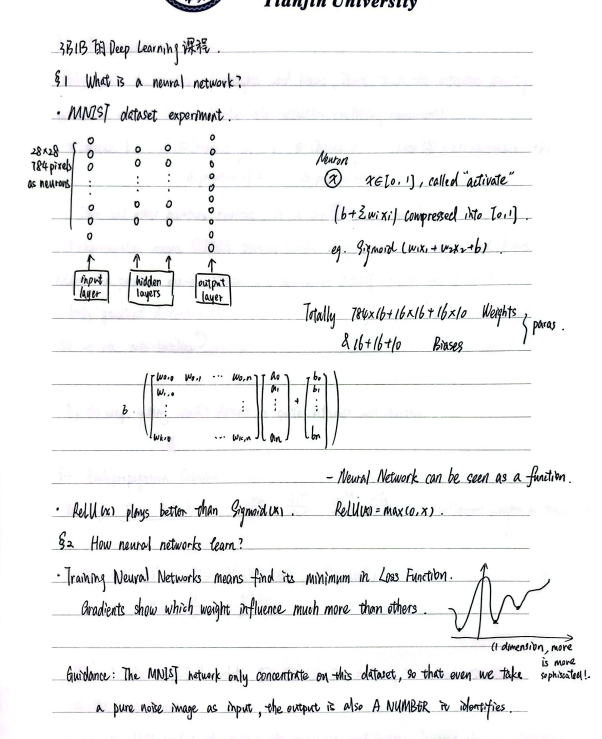 Tianjin University
3B1B 的 Deep Learning 课程.
§1 What is a neural network?
· MNIST dataset experiment.
28×28
784 pixels
as neurons
input
layer
hidden
layers
output
layer
Neuron
x x∈[0,1], called "activate"
(b+Σwixi) compressed into [0,1].
eg. Sigmoid (w1x1+w2x2+b).
Totally 784×16+16×16+16×10 Weights
& 16+16+10 Biases
paras.
w0,0 w0,1 ... w0,n a0 b0
w1,0 a1 b1
⋮ ⋮ ⋮ ⋮
wk,0 ... wk,n an bn
+
- Neural Network can be seen as a function.
· ReLU(x) plays better than Sigmoid(x). ReLU(x)=max(0,x).
§2 How neural networks learn?
· Training Neural Networks means find its minimum in Loss Function.
Gradients show which weight influence much more than others.
(1 dimension, more
is more
sophisticated!)
Guidance: The MNIST network only concentrate on this dataset, so that even we take
a pure noise image as input, the output is also A NUMBER it identifies.